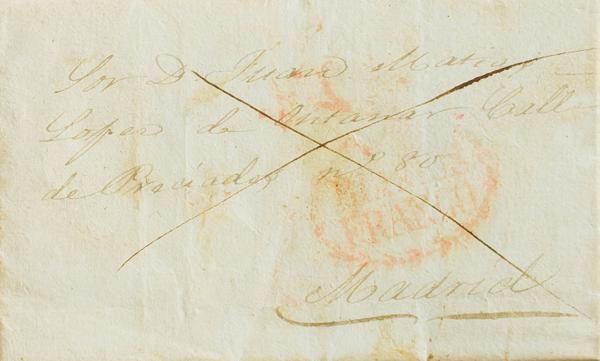 Sor D Juan Matias
Lopez de Antanar Call
de Preciados nº 80
FRANCO
Madrid